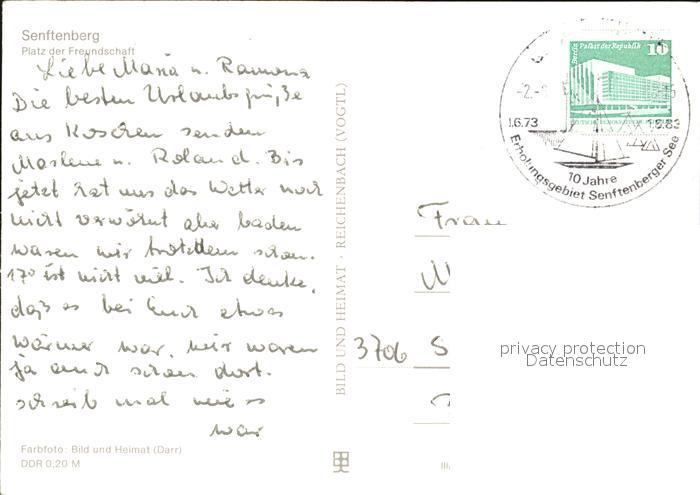 Senftenberg
Platz der Freundschaft
Liebe Maria u. Ramona
Die besten Urlaubsgrüße
aus Koschen senden
Marlene u. Roland. Bis
jetzt hat uns das Wetter noch
nicht verwöhnt aber baden
waren wir trotzdem schon.
17° ist nicht viel. Ich denke,
daß es bei Euch etwas
wärmer war, wir waren
ja auch schon dort.
schreib mal wie es
war
Farbfoto: Bild und Heimat (Darr)
DDR 0,20 M
BILD UND HEIMAT · REICHENBACH (VOGTL)
Berlin Palast der Republik 10
1.6.73 1.6.83
10 Jahre
Erholungsgebiet Senftenberger See
Frau
M
3706 S
privacy protection
Datenschutz
III